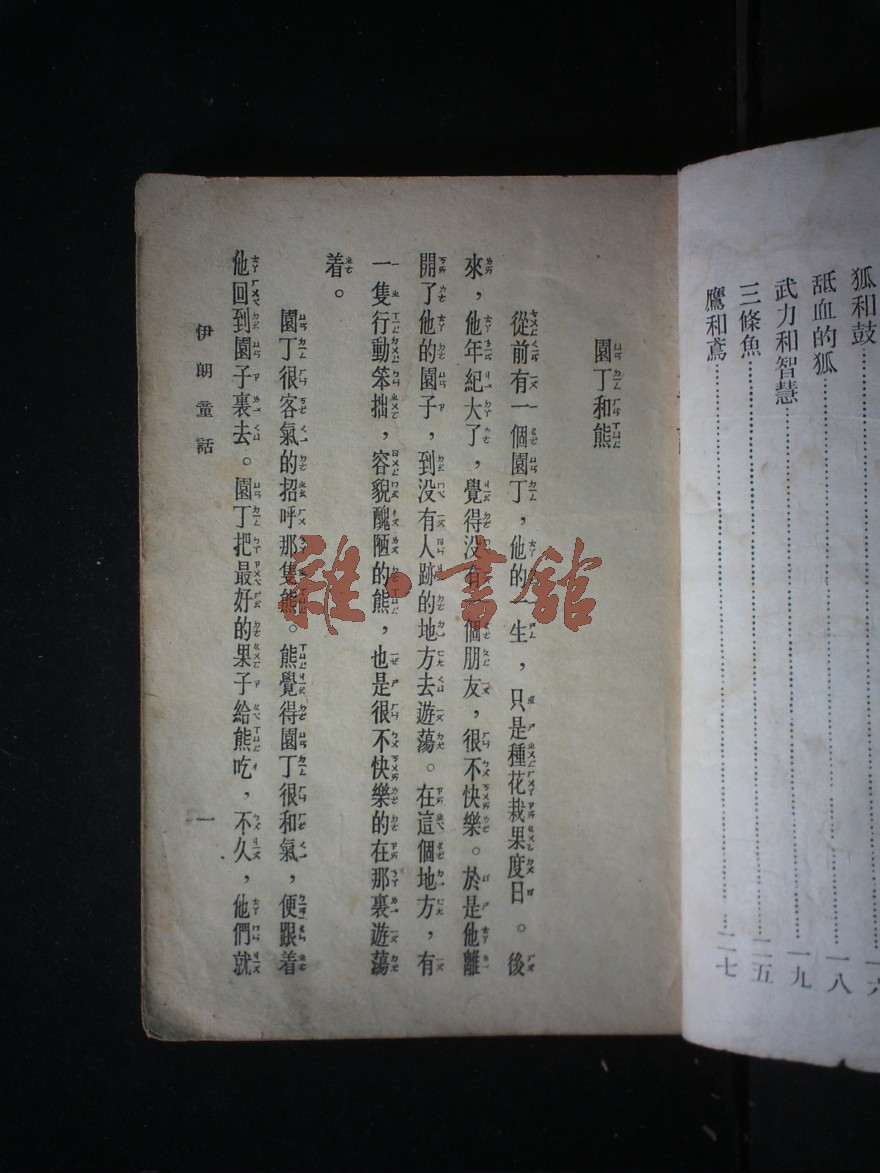 狐和鼓……………………一六
舐血的狐……………………一八
武力和智慧……………………一九
三條魚……………………二五
鷹和鳶……………………二七
園丁和熊
從前有一個園丁，他的一生，只是種花栽果度日。後
來，他年紀大了，覺得没有一個朋友，很不快樂。於是他離
開了他的園子，到没有人跡的地方去遊蕩。在這個地方，有
一隻行動笨拙，容貌醜陋的熊，也是很不快樂的在那裏遊蕩
着。
園丁很客氣的招呼那隻熊。熊覺得園丁很和氣，便跟着
他回到園子裏去。園丁把最好的果子給熊吃，不久，他們就
伊朗童話
一
雜·書館